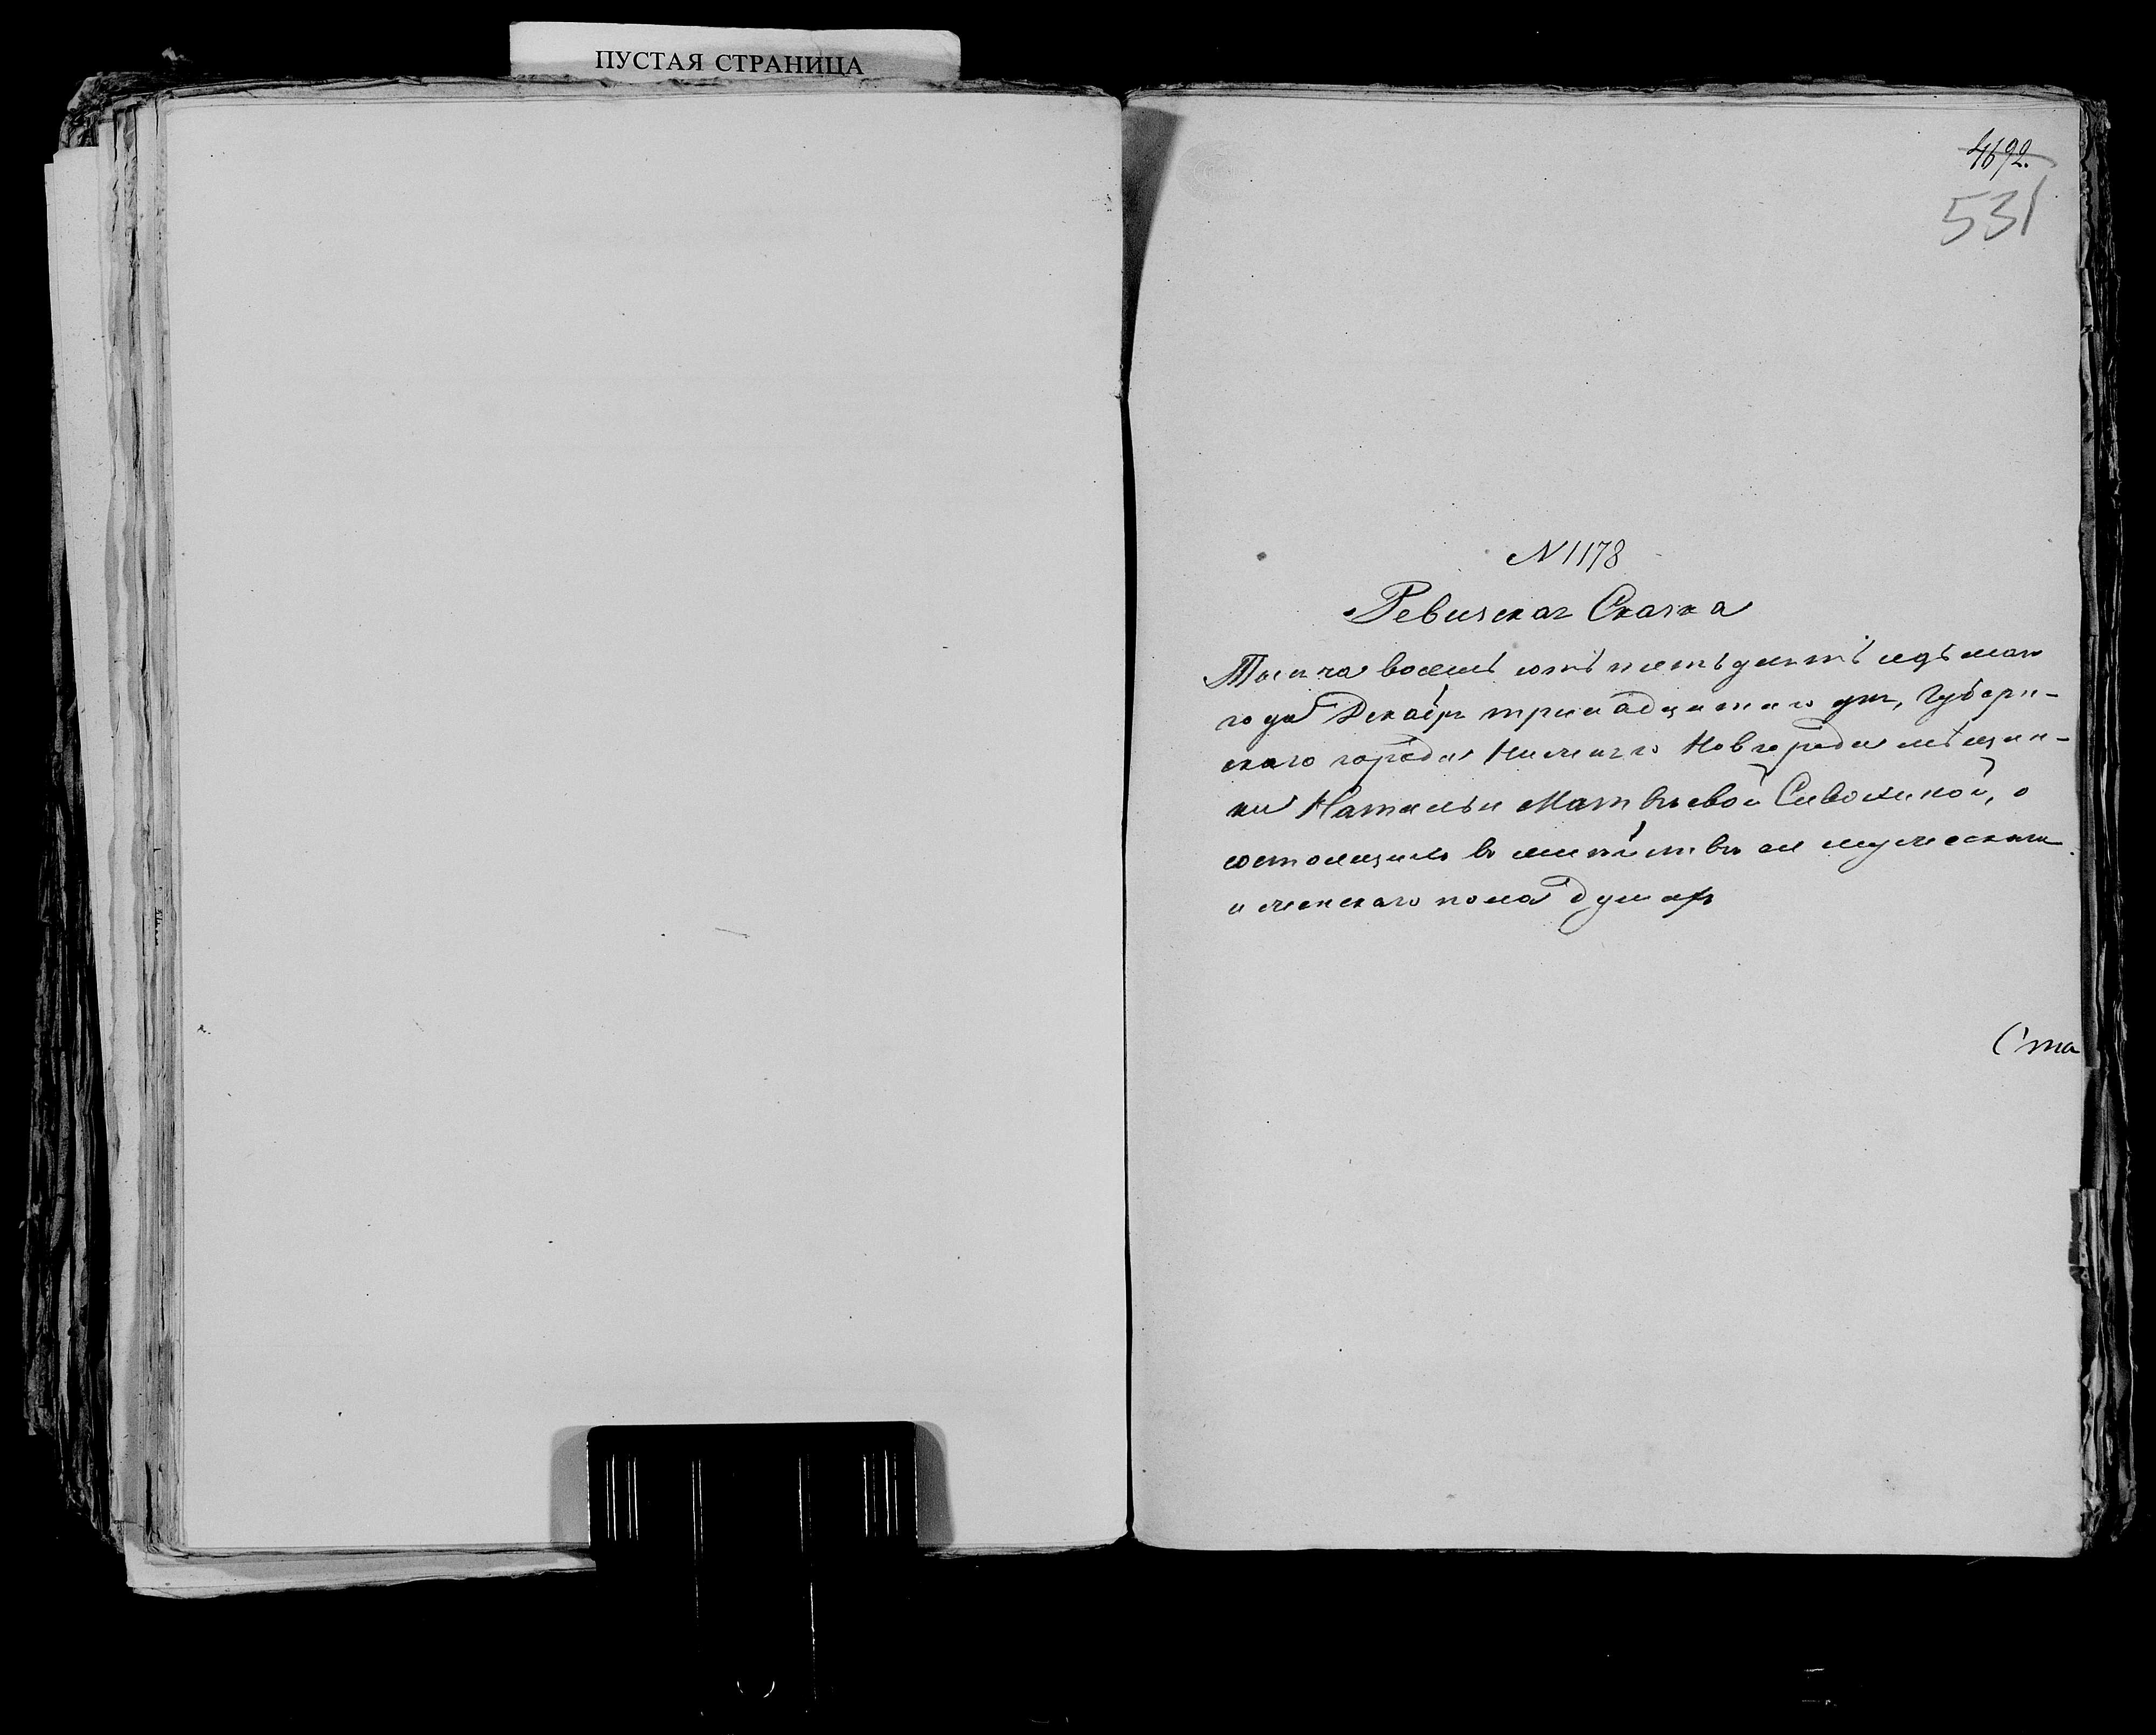 ПУСТАЯ СТРАНИЦА
4692.
531
N 1178
Ревизская Сказка
Тысяча восемь сотъ пятьдесятъ седьмаго
года Декабря тринадцатаго дня, Губерн-
скаго города Нижняго Новгорода мѣщан-
ки Натальи Матвѣевой Сивохиной, о
состоящихъ въ мѣщанствѣ ея мужескаго
и женскаго пола душахъ
Ста